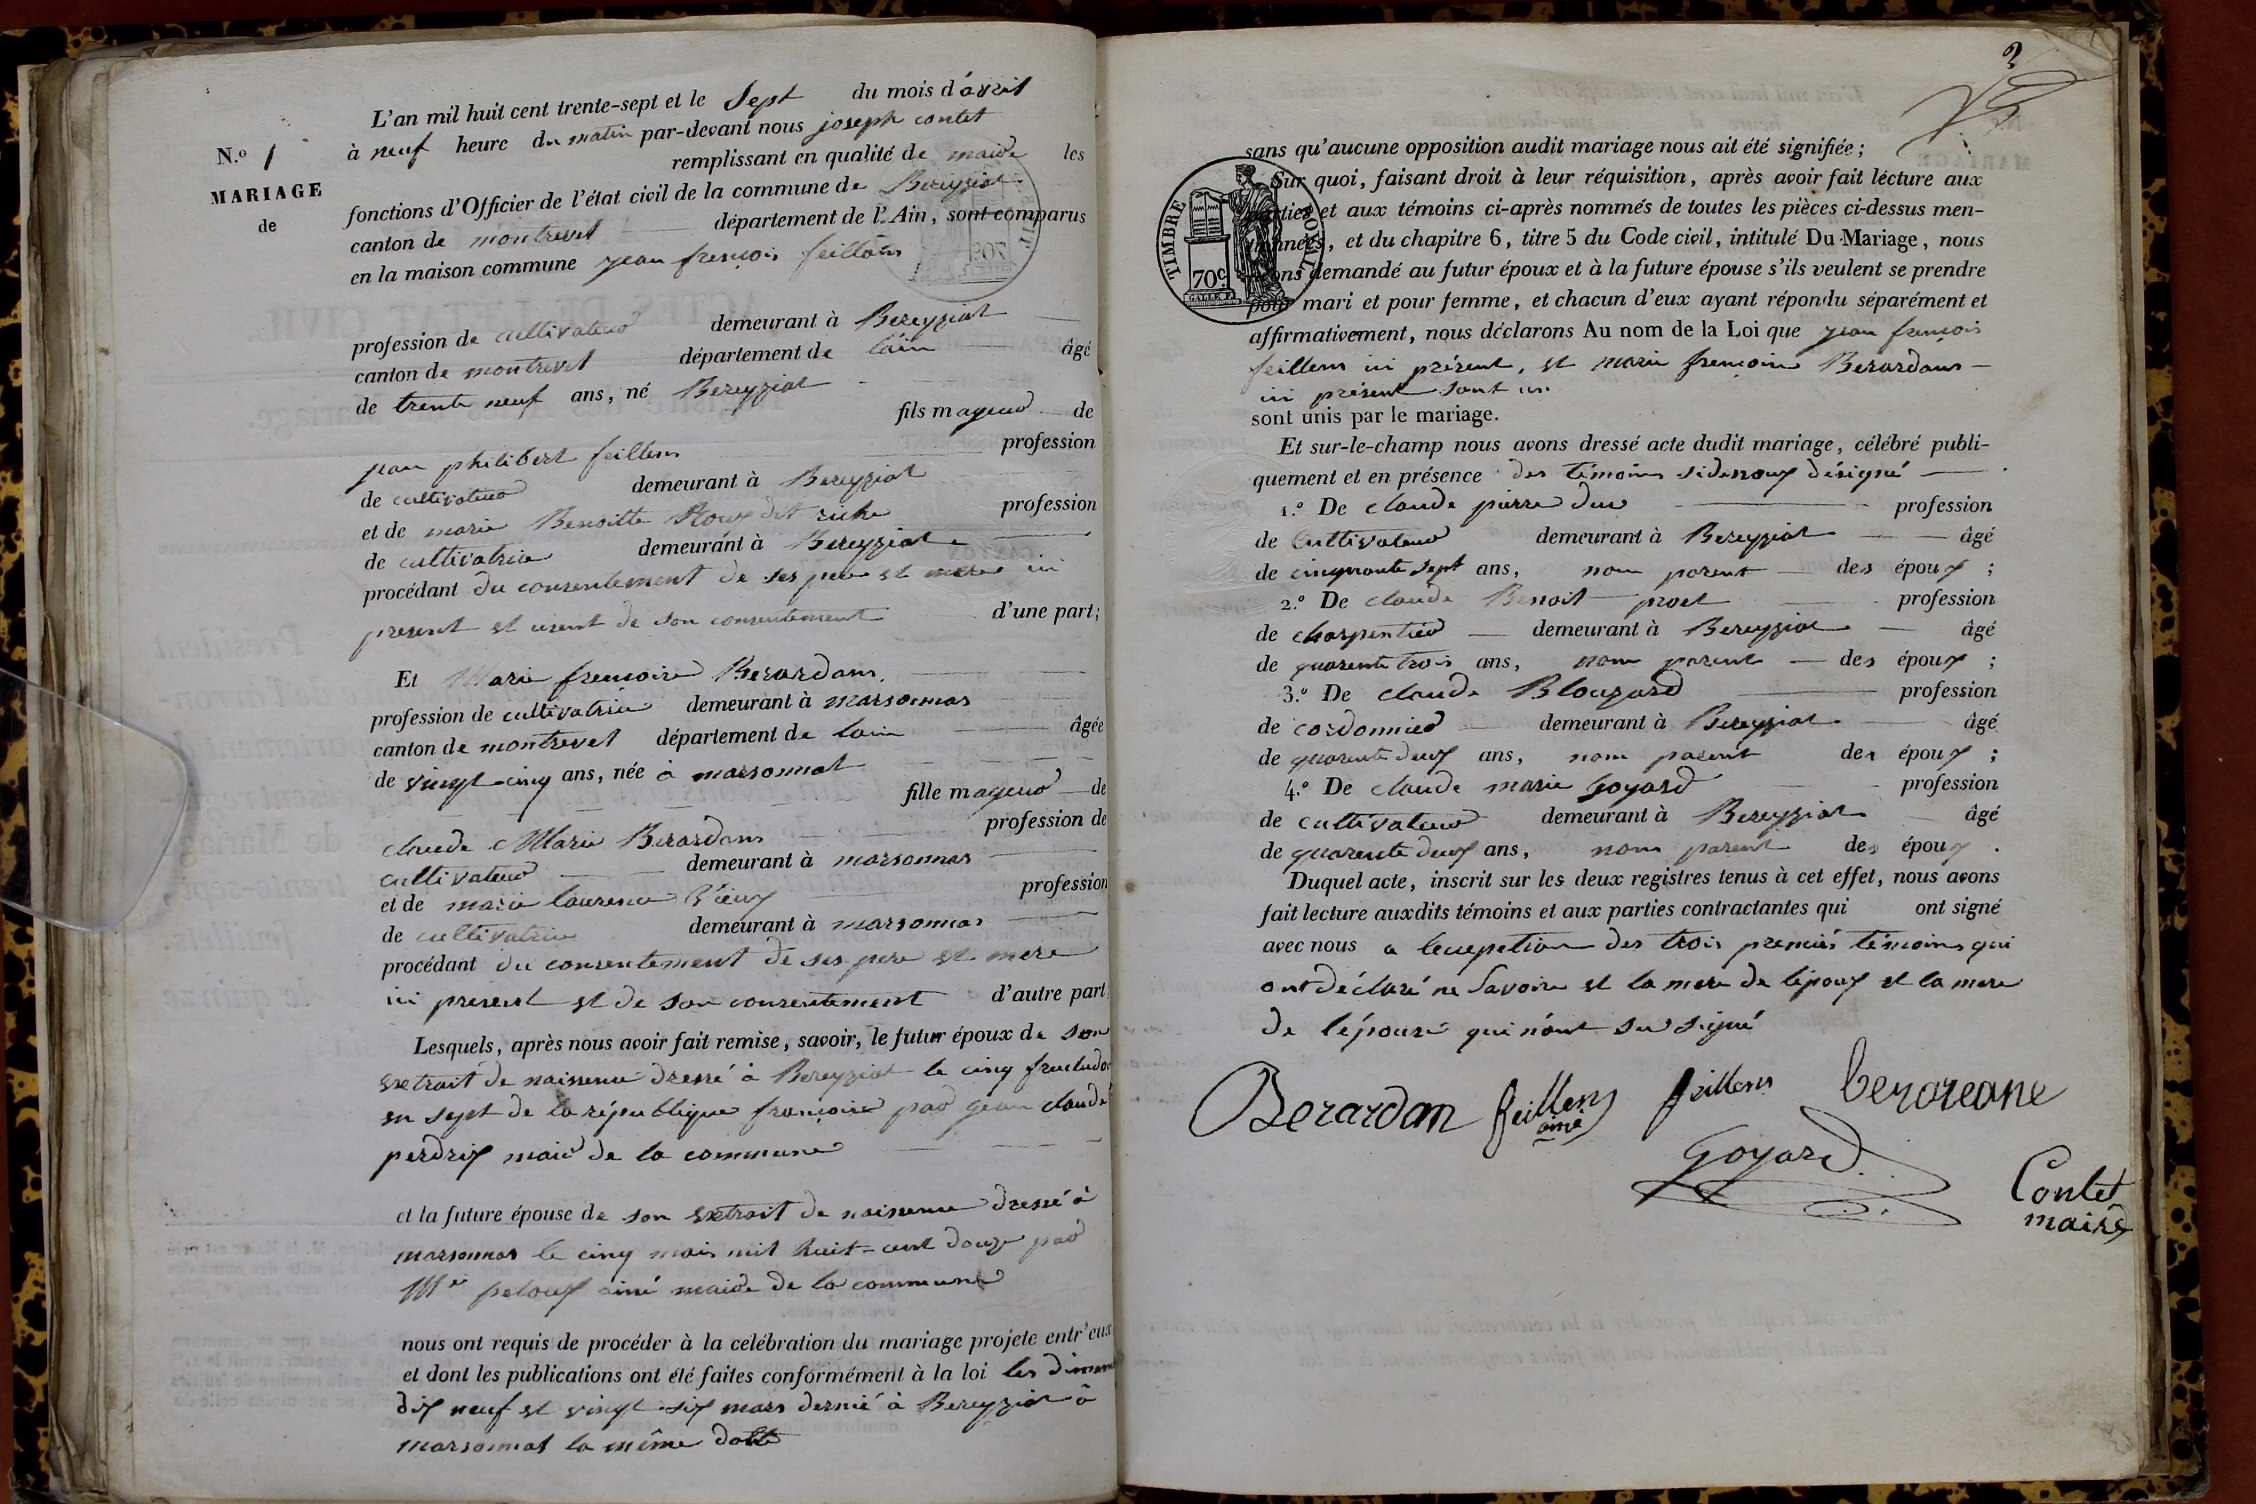 L'an mil huit cent trente-sept et le sept du mois d'avril
N.º 1
à neuf heure du matin par-devant nous joseph contet
remplissant en qualité de maire les
MARIAGE
fonctions d'Officier de l'état civil de la commune de Bereyziat
de
canton de montrevel département de l'Ain, sont comparus
en la maison commune jean françois feillens
profession de cultivateur demeurant à Bereyziat
canton de montrevel département de lain âgé
de trente neuf ans, né Bereyziat
fils mageur de
jean philibert feillens profession
de cultivateur demeurant à Bereyziat
et de marie Benoitte Roux dit riche profession
de cultivatrice demeurant à Bereyziat
procédant du consentement de ses pere et mere ici
present et usent de son consentement d'une part;
Et Marie françoise Berardans
profession de cultivatrice demeurant à marsonnas
canton de montrevel département de lain âgée
de vingt-cinq ans, née à marsonnat
fille mageur de
claude Marie Berardans profession de
cultivateur demeurant à marsonnas
et de marie laurence profession
de cultivatrice demeurant à marsonnas
procédant du consentement de ses pere et mere
ici present et de son consentement d'autre part
Lesquels, après nous avoir fait remise, savoir, le futur époux de son
extrait de naissence dressé à Bereyziat le cinq fructudor
en sept de la république françoise par jean claude
perdrix maire de la commune
et la future épouse de son extrait de naissence dressé à
marsonnas le cinq mais mil huit-cent douze par
Mr peloux ainé maire de la commune
nous ont requis de procéder à la celébration du mariage projete entr'eux
et dont les publications ont été faites conformément à la loi les diman
dix neuf et vingt-six mars dernié à Bereyziat à
marsonnas la même datte
2
sans qu'aucune opposition audit mariage nous ait été signifiée;
Sur quoi, faisant droit à leur réquisition, après avoir fait lecture aux
parties et aux témoins ci-après nommés de toutes les pièces ci-dessus men-
tionnées, et du chapitre 6, titre 5 du Code civil, intitulé Du Mariage, nous
avons demandé au futur époux et à la future épouse s'ils veulent se prendre
pour mari et pour femme, et chacun d'eux ayant répondu séparément et
TIMBRE ROYAL
70c.
affirmativement, nous déclarons Au nom de la Loi que jean françois
feillens ici présent, et marie françoise Berardans
ici présent sont un
sont unis par le mariage.
Et sur-le-champ nous avons dressé acte dudit mariage, célébré publi-
quement et en présence des témoins sidenoux désigné
1.º De claude pierre duc profession
de Cultivateur demeurant à Bereyziat âgé
de cinquante sept ans, nom parent des époux ;
2.º De claude Benoit proet profession
de charpentier demeurant à Bereyziat âgé
de quarente trois ans, nom parent des époux ;
3.º De claude Blouzard profession
de cordonnier demeurant à Bereyziat âgé
de quarente deux ans, nom parent des époux ;
4.º De claude marie goyard profession
de cultivateur demeurant à Bereyziat âgé
de quarente deux ans, nom parent des époux .
Duquel acte, inscrit sur les deux registres tenus à cet effet, nous avons
fait lecture auxdits témoins et aux parties contractantes qui ont signé
avec nous a lecuepetion des trois premiés témoins qui
ont déclaré ne savoire et la mere de lépoux et la mere
de lépouse qui n'ont su signé
Berardan feillens ainé feillens berareane
Goyard
Contet
maire